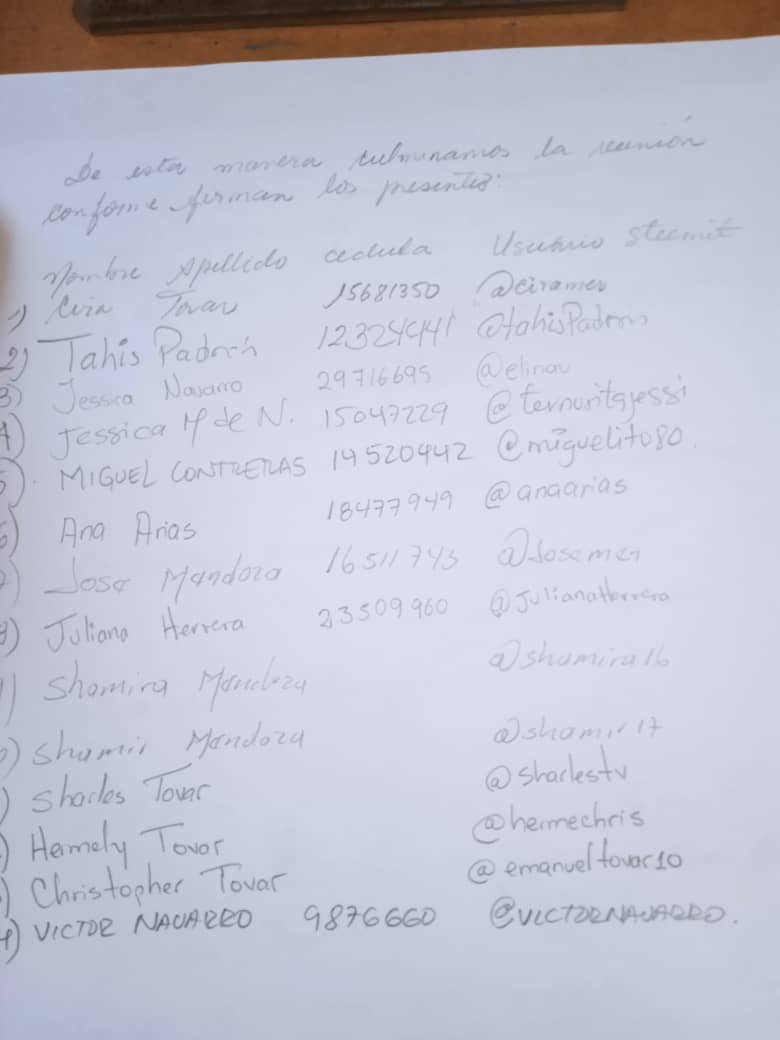 De esta manera culminamos la reunión
conforme firman los presentes:
Nombre Apellido cedula Usuario steemit
1) Tovar 15681350 @ciramer
2) Tahis Padrón 12324441 @tahisPadron
3) Jessica Navarro 29716695 @elinav
4) Jessica M de N. 15047229 @ternuritajessi
5) MIGUEL CONTRERAS 14520442 @miguelito80.
6) Ana Arias 18477949 @anaarias
7) Jose Mendoza 16511743 @Josemen
8) Juliana Herrera 23509960 @JulianaHerrera
) Shamira Mendoza @shamira16
) Shamir Mendoza @shamir17
) Sharles Tovar @sharlestv
) Hemely Tovar @hermechris
) Christopher Tovar @emanueltovar10
4) VICTOR NAVARRO 9876660 @VICTORNAVARRO.